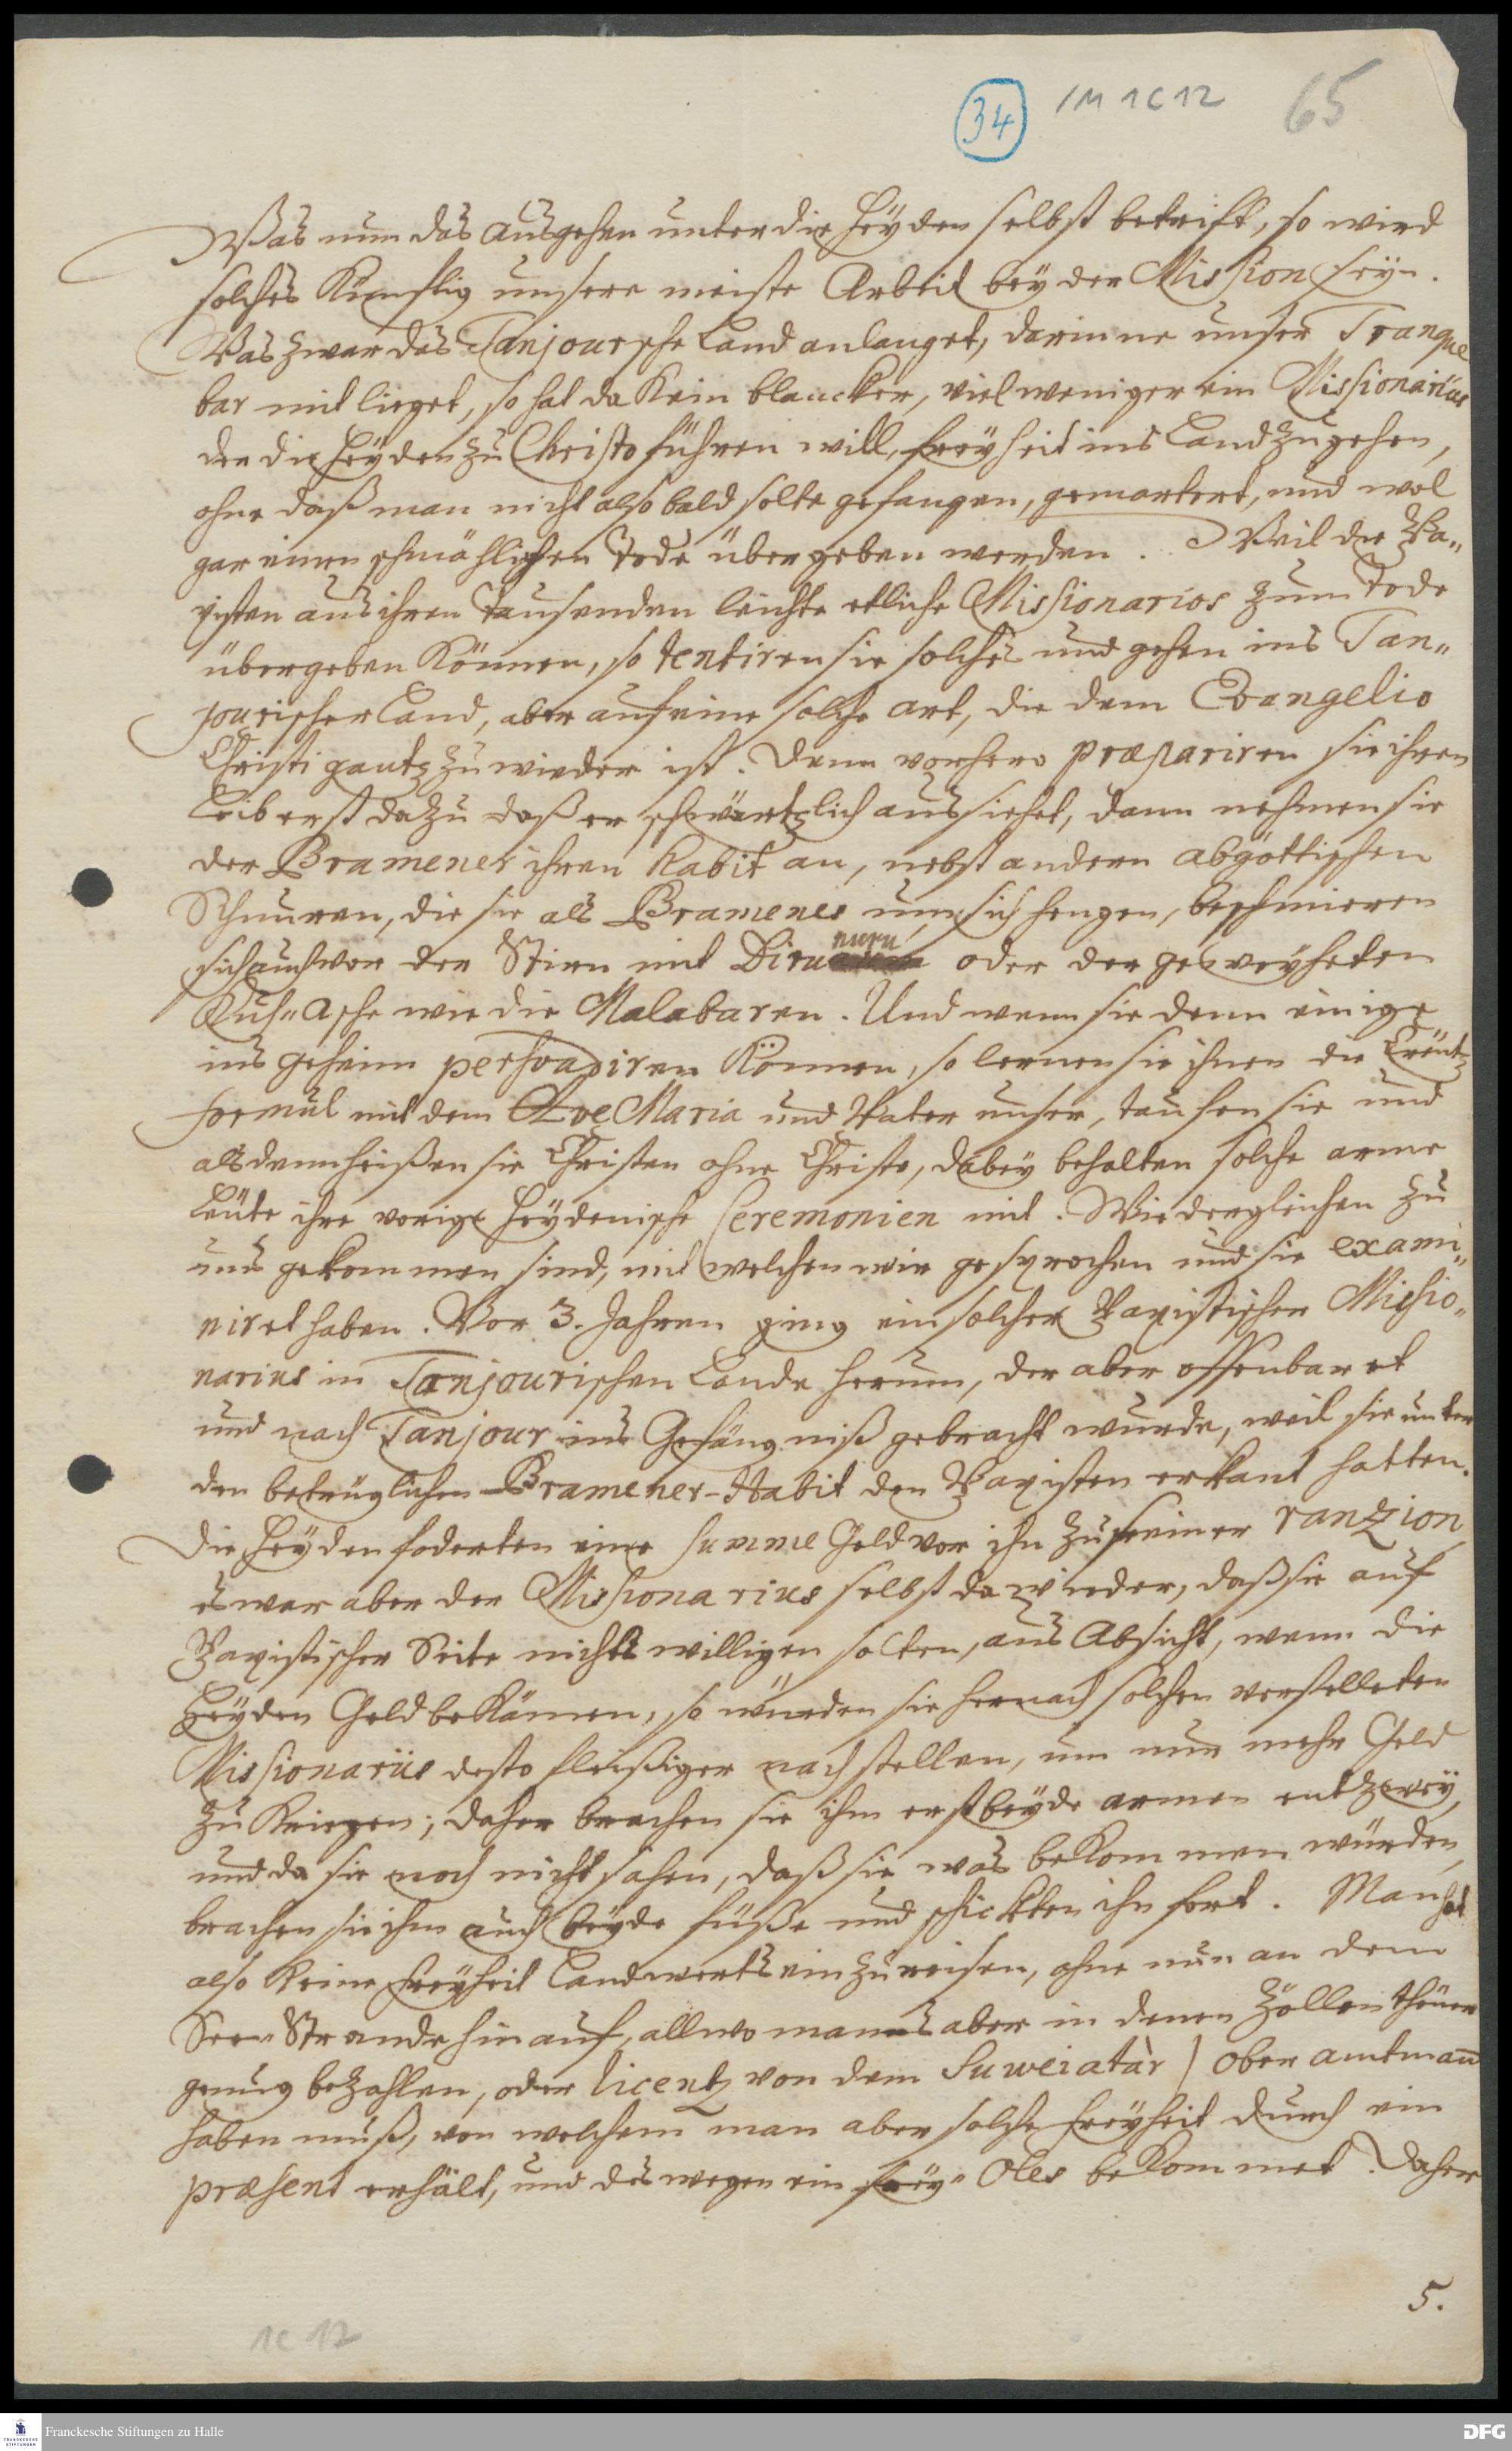 34 1M 1C 12 65
Was nun das ausgehen unter die Heyden selbst betrifft, so wird
solches Künfftig unsere meiste Arbeit bey der Mission seyn.
Was zwar das Tanjoursche Land anlanget, darinne unser Tranque
bar mit lieget, so hat da Kein blancker, vielweniger ein Missionarius
der die Heyden zu Christo führen will, freyheit ins Land zu gehen,
ohne daß man nicht also bald solte gefangen, gemartert, und wol
gar einem schmählichen Tode übergeben werden. Weil die Pa„
pisten aus ihren Tausenden leichte etliche Missionarios zum Tode
übergeben Können, so tentiren sie solches und gehen ins Tan„
jourische Land, aber auf eine solche art, die dem Evangelio
Christi gantz zuwieder ist. Denn vorhero præpariren sie ihren
Leib erst dazu daß er schwärtzlich aussiehet, dann nehmen sie
der Bramener ihren habit an, nebst andern abgöttischen
Schnuren, die sie als Bramenes um sich hengen, beschmieren
sich auch vor der Stirn mit Dirunuru oder der geweyheten
Kuh„Asche wie die Malabaren. Und wenn sie denn einige
ins geheim persvadiren Können, so lernen sie ihnen die Creutz
formul mit dem Ave Maria und Vater unser, taufen sie und
alsdenn heißen sie Christen ohne Christo, dabey behalten solche arme
Leute ihre vorige Heydenische Ceremonien mit. Wie dergleichen zu
uns gekommen sind, mit welchen wir gesprochen und sie exami„
niret haben. Vor 3. Jahren ging ein solcher Papistischer Missio„
narius in Tanjourischen Lande herum, der aber offenbaret
und nach Tanjour ins Gefängniß gebracht wurde, weil sie unter
den betrüglichen Bramener-Habit den Papisten erkant hatten.
Die Heyden foderten eine Summe Geld vor ihn zu seiner rantzion,
es war aber der Missionarius selbst dawieder, daß sie auf
Papistischer Seite nichts willigen solten, aus Absicht, wenn die
Heyden Geld bekämen, so würden sie hernach solchen verstelleten
Missionarius desto fleißiger nachstellen, um nur mehr Geld
zu Kriegen; daher brachen sie ihm erst beyde armen entzwey,
und da sie noch nicht sahen, daß sie was bekommen würden,
brachen sie ihm auch beyde füße und schickten ihn fort. Man hat
also Keine freyheit Landwerts ein zu reisen, ohne nur an dem
See„Strande hinauf, allwo mans aber in denen Zöllen theuer
genug bezahlen, oder licentz von dem Suweiatàr) Ober amtmann
haben muß, von welchem man aber solche freyheit durch ein
præsent erhält, und deswegen ein frey„Oles bekommet. Daher
5.
1C 12
Franckesche Stiftungen zu Halle
FRANCKESCHE STIFTUNGEN
DFG